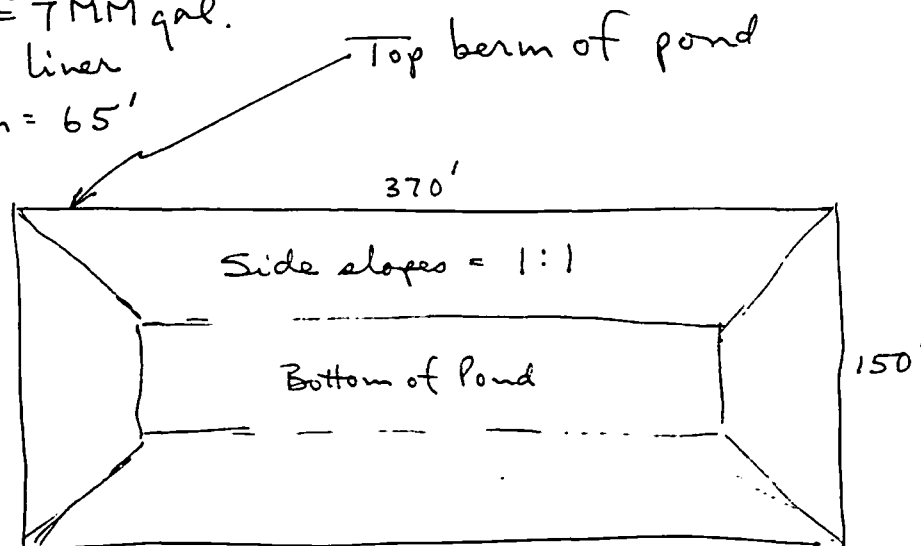 = 7 MM gal.
liner
= 65'
Top berm of pond
370'
Side slopes = 1:1
Bottom of Pond
150'